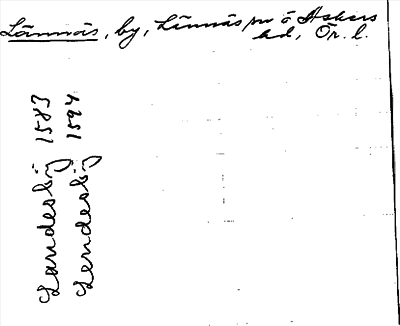 Lännäs, by, Lännäs sn o Askers
hd, Ör. l.
Landesbÿ 1583
Lendesbÿ 1594